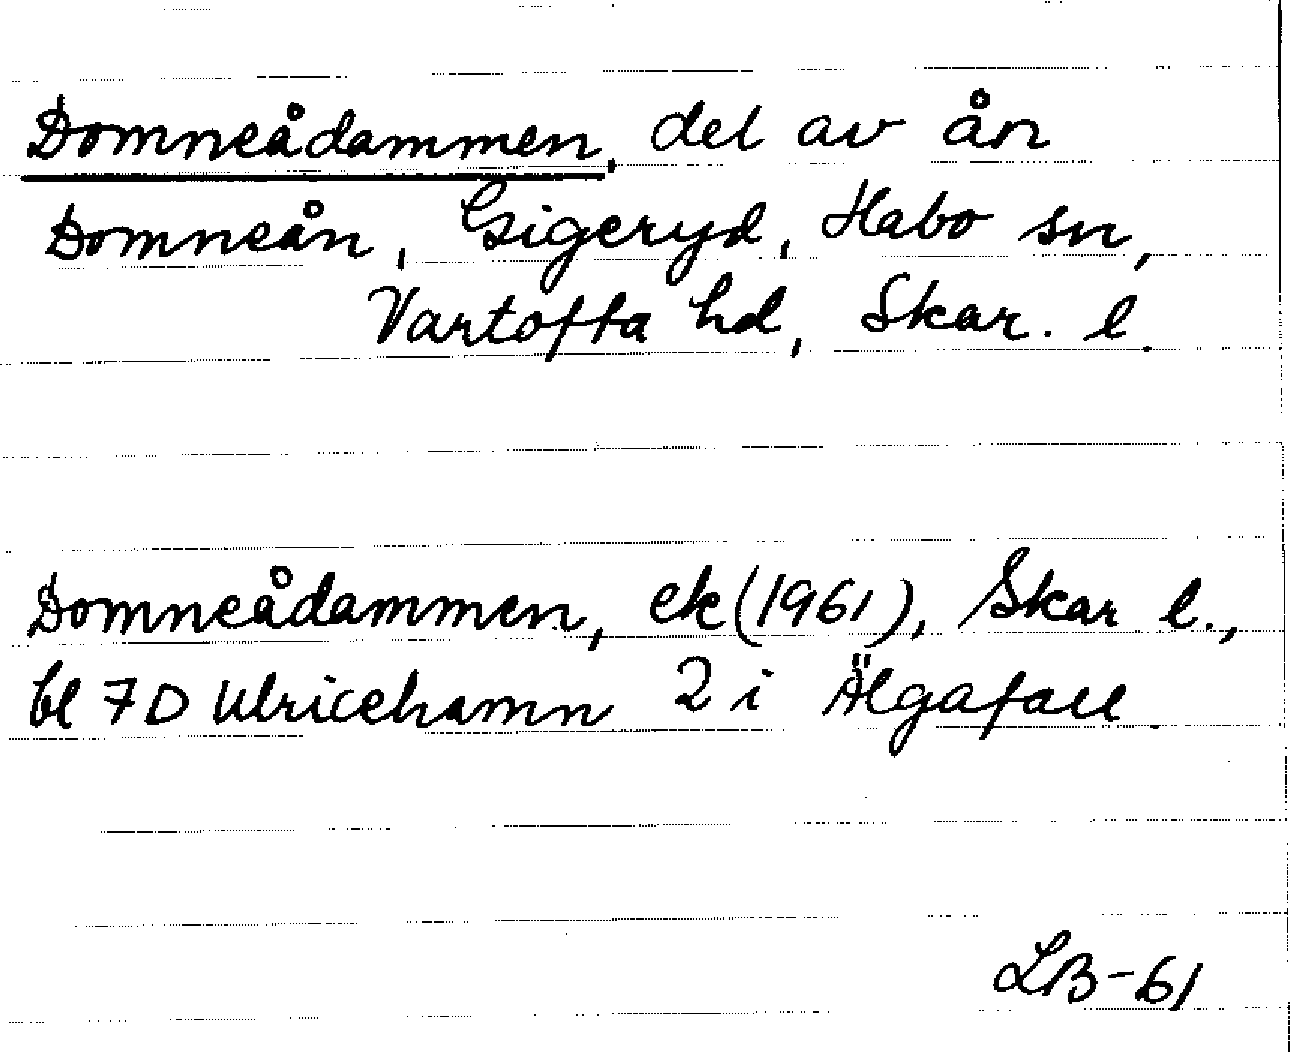 Domneådammen, del av ån
Domneån, Gigeryd, Habo sn,
Vartofta hd, Skar. l.
Domneådammen, ek (1961), Skar l.,
bl 7D Ulricehamn 2 i Älgafall.
LB-61